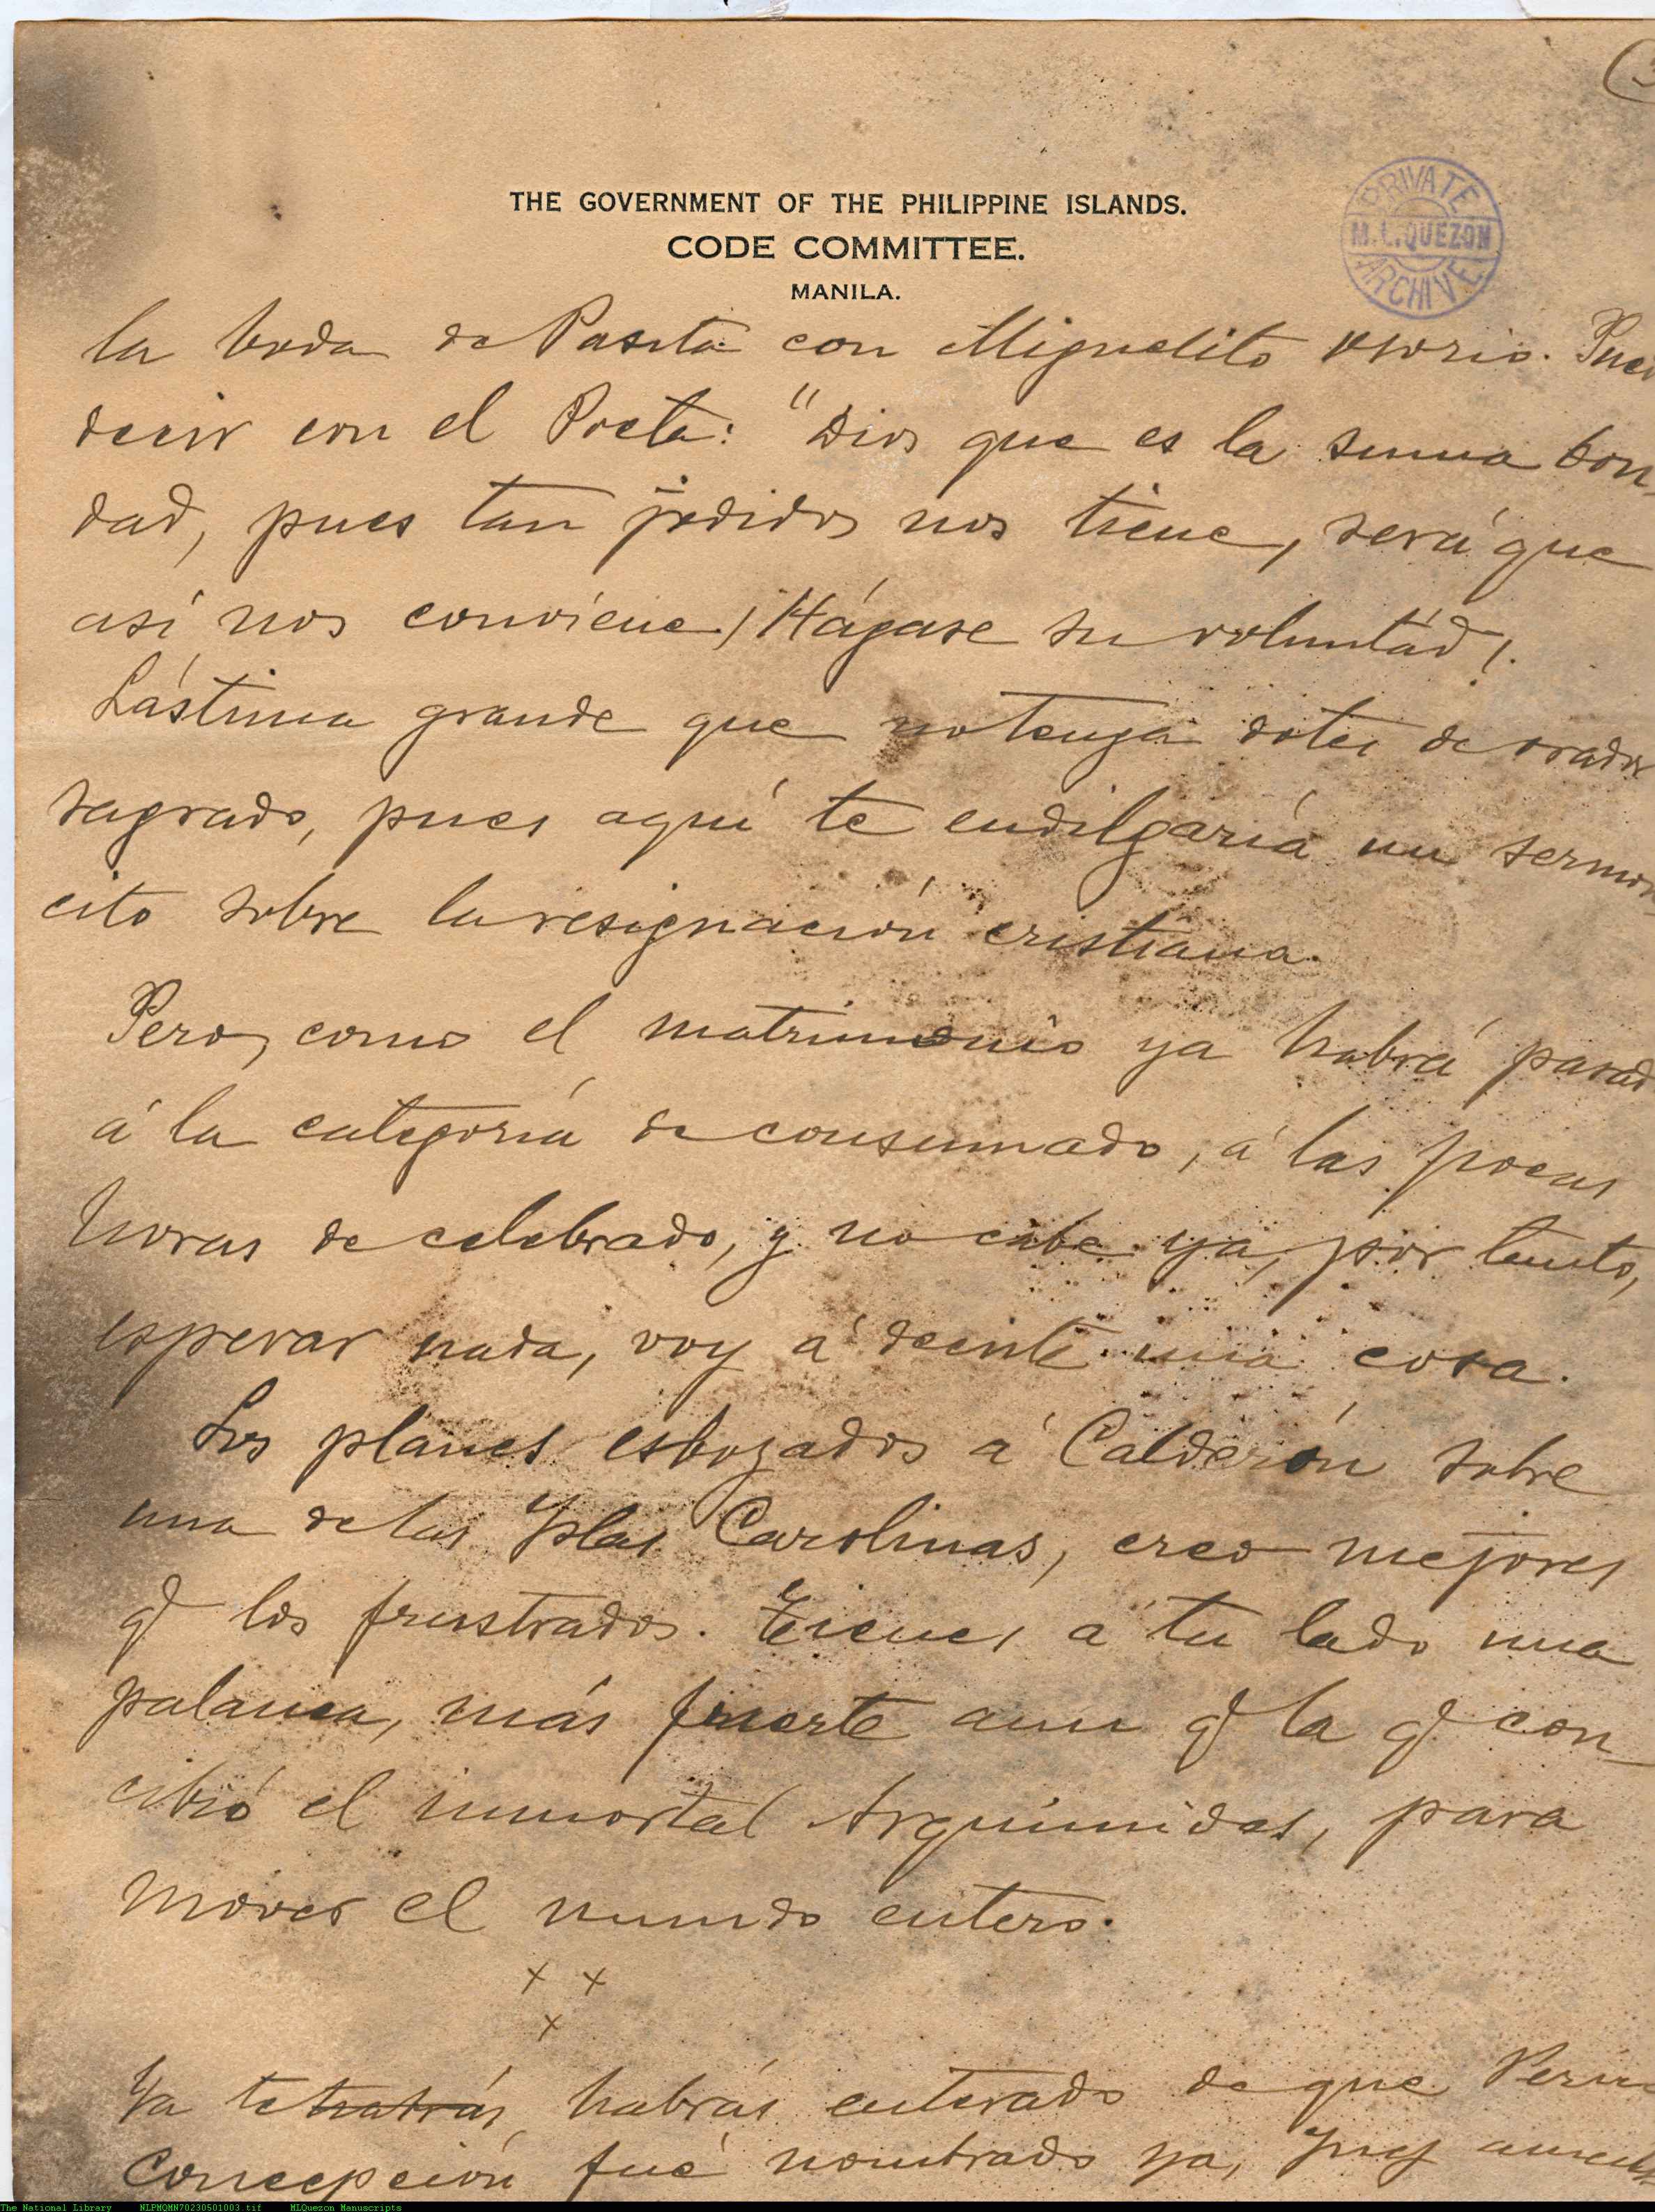 (3
THE GOVERNMENT OF THE PHILIPPINE ISLANDS.
CODE COMMITTEE.
MANILA.
PRIVATE
M.L. QUEZON
ARCHIVE
la boda de Pasita con Miguelito Osorio. Pued
decir con el Poeta: "Dios que es la suma bon-
dad, pues tan jodidos nos tiene, será que
así nos conviene ¡Hágase su voluntad!.
Lástima grande que no tenga dotes de orador
sagrado, pues aquí te endilgaría un sermon-
cito sobre la resignación cristiana.
Pero, como el matrimonio ya habrá pasad
á la categoría de consumado, á las pocas
horas de celebrado, y no cabe ya, por tanto,
esperar nada, voy á decirte una cosa.
Los planes esbozados á Calderón sobre
una de las Yslas Carolinas, creo mejores
q los frustrados. Tienes á tu lado una
palanca, más fuerte aun q la q con-
cibió el inmortal Arquimides, para
mover el mundo entero.
x x
x
Ya te habrás enterado de que
Concepción fué nombrado ya,
The National Library NLPMQMN70230501003.tif MLQuezon Manuscripts